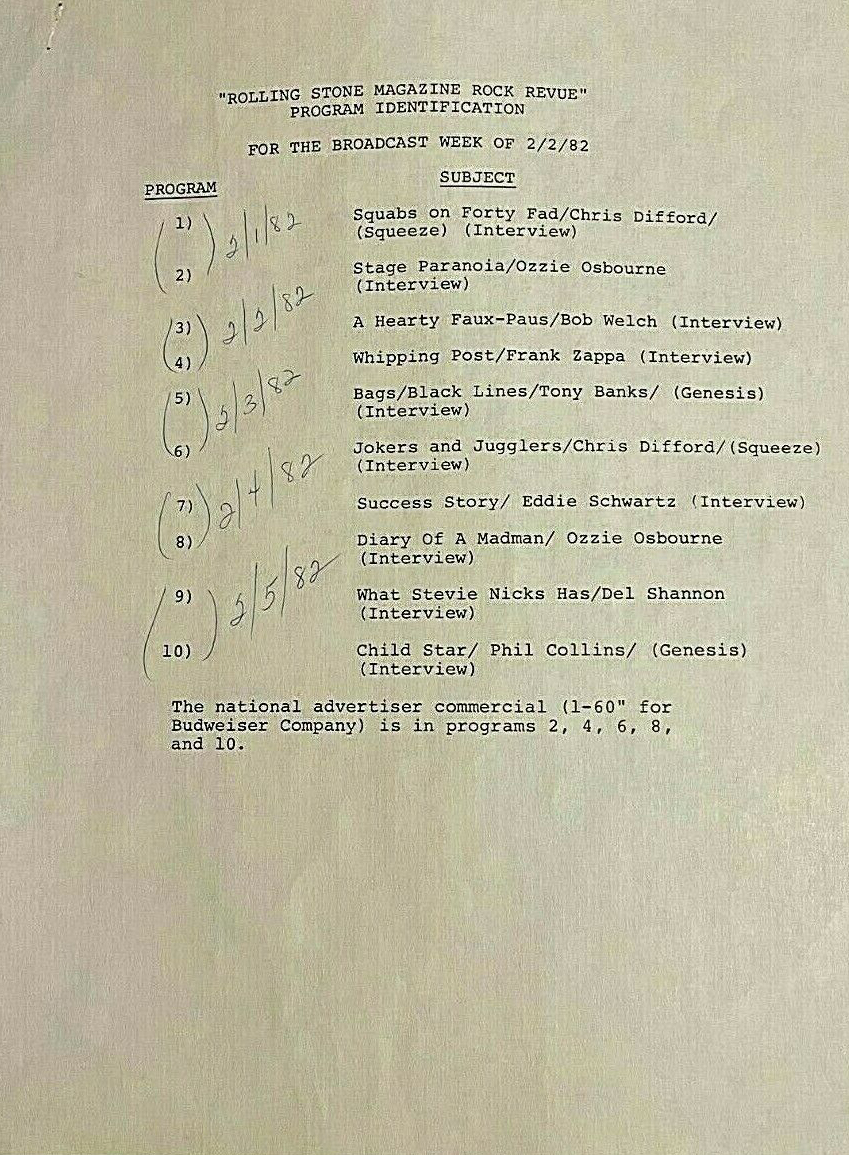 "ROLLING STONE MAGAZINE ROCK REVUE"
PROGRAM IDENTIFICATION
FOR THE BROADCAST WEEK OF 2/2/82
PROGRAM SUBJECT
1) 2/1/82 Squabs on Forty Fad/Chris Difford/
(Squeeze) (Interview)
2) Stage Paranoia/Ozzie Osbourne
(Interview)
3) 2/2/82 A Hearty Faux-Paus/Bob Welch (Interview)
4) Whipping Post/Frank Zappa (Interview)
5) 2/3/82 Bags/Black Lines/Tony Banks/ (Genesis)
(Interview)
6) Jokers and Jugglers/Chris Difford/(Squeeze)
(Interview)
7) 2/4/82 Success Story/ Eddie Schwartz (Interview)
8) Diary Of A Madman/ Ozzie Osbourne
(Interview)
9) 2/5/82 What Stevie Nicks Has/Del Shannon
(Interview)
10) Child Star/ Phil Collins/ (Genesis)
(Interview)
The national advertiser commercial (1-60" for
Budweiser Company) is in programs 2, 4, 6, 8,
and 10.